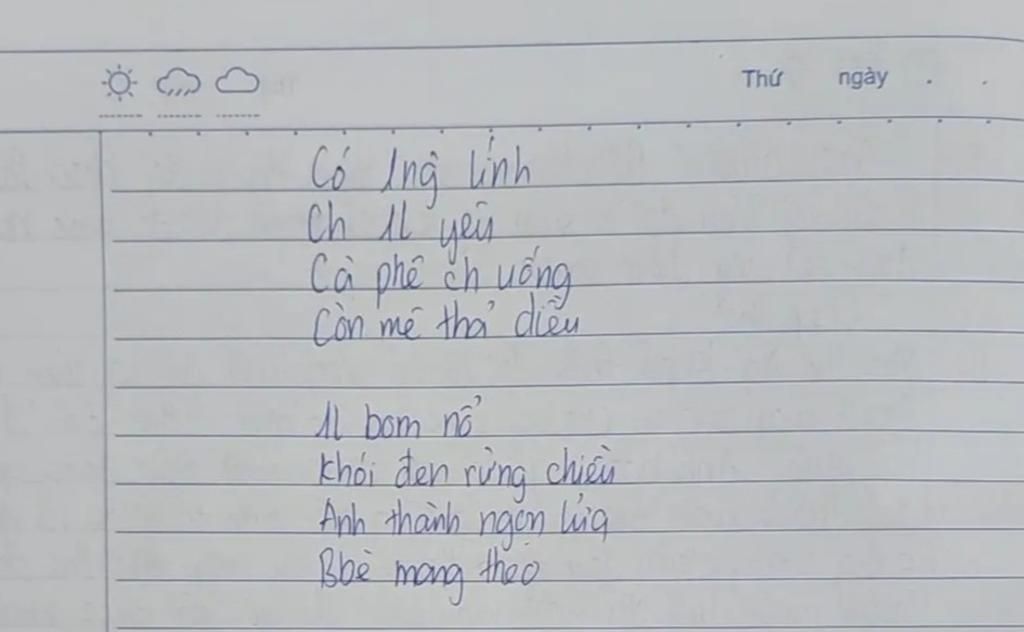 Thứ ngày . .
Có 1ng lính
Ch 1l yêu
Cà phê ch uống
Còn mê thả diều
1l bom nổ
Khói đen rừng chiều
Anh thành ngọn lửa
Bbè mang theo